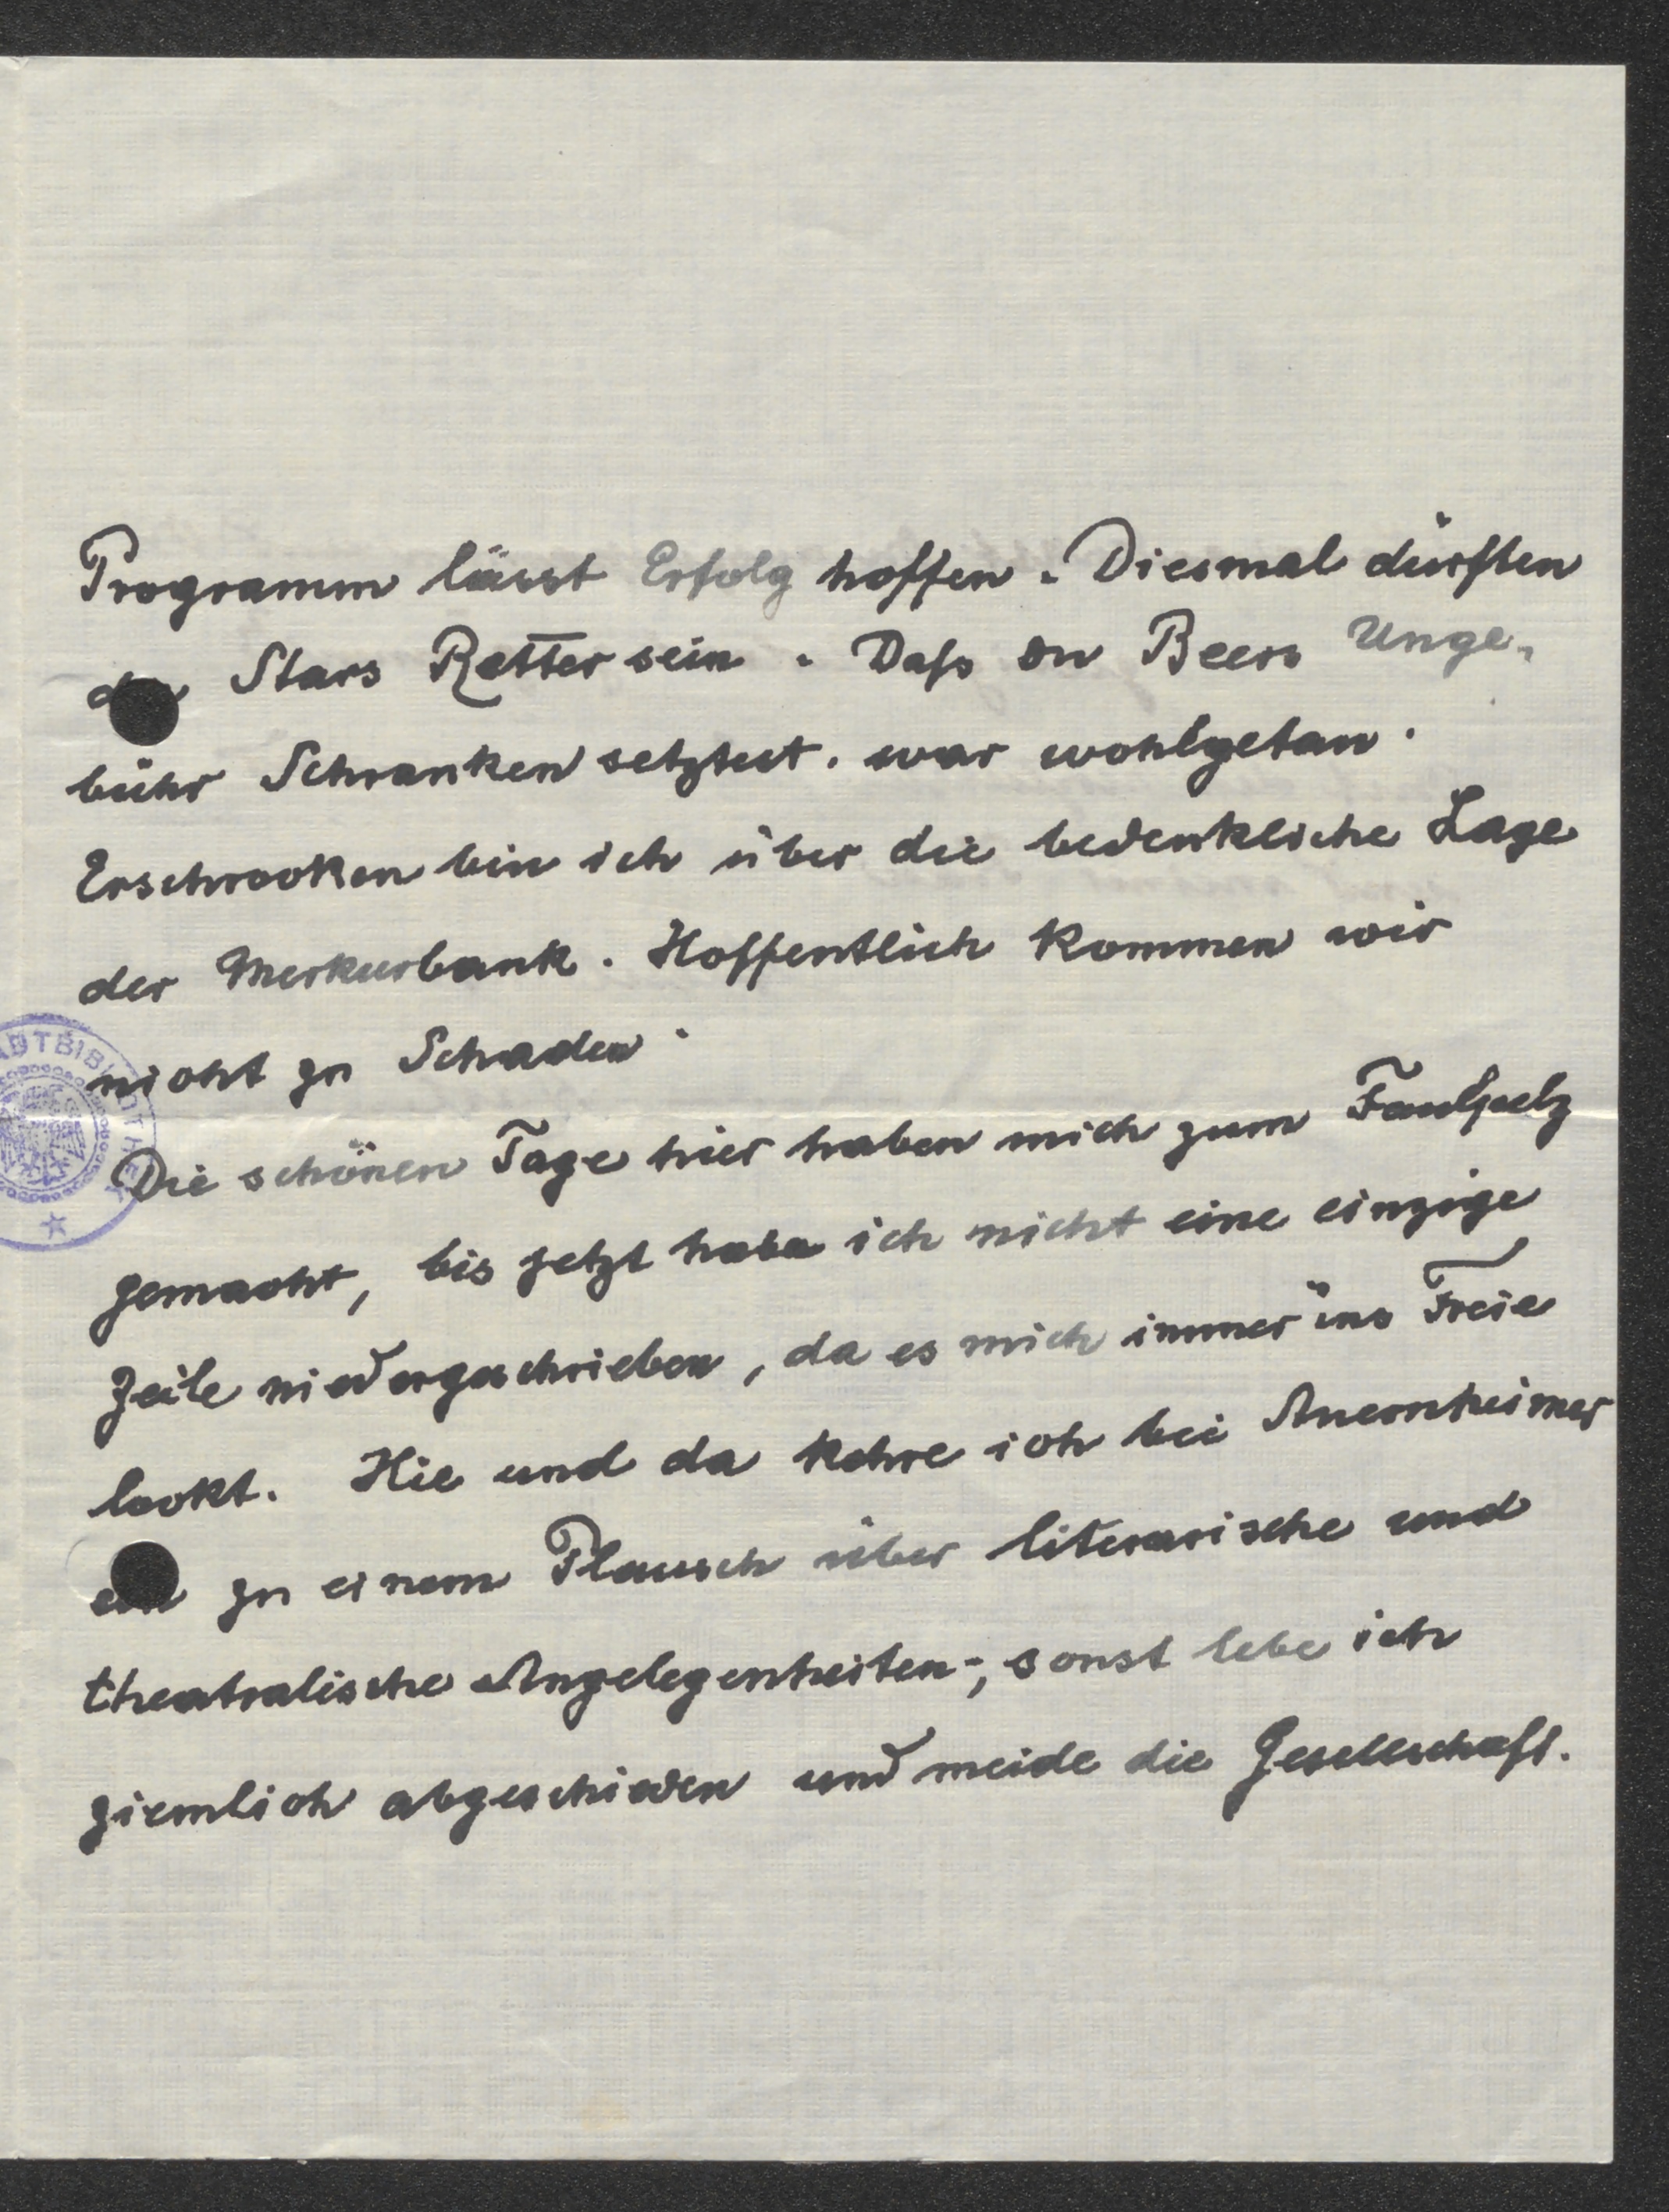 Programm lässt Erfolg hoffen. Diesmal dürften
Stars Retter sein. Daß du Beers Unge-
bühr Schranken setztest, war wohlgetan.
Erschrocken bin ich über die bedenkliche Lage
der Merkurbank. Hoffentlich kommen wir
nicht zu Schaden.
Die schönen Tage hier haben mich zum Faulpelz
gemacht, bis jetzt habe ich nicht eine einzige
Zeile niedergeschrieben, da es mich immer ins Freie
lockt. Hie und da kehre ich bei Auernheimer
ein zu einem Plausch über literarische und
theatralische Angelegenheiten-, sonst lebe ich
ziemlich abgeschieden und meide die Gesellschaft.